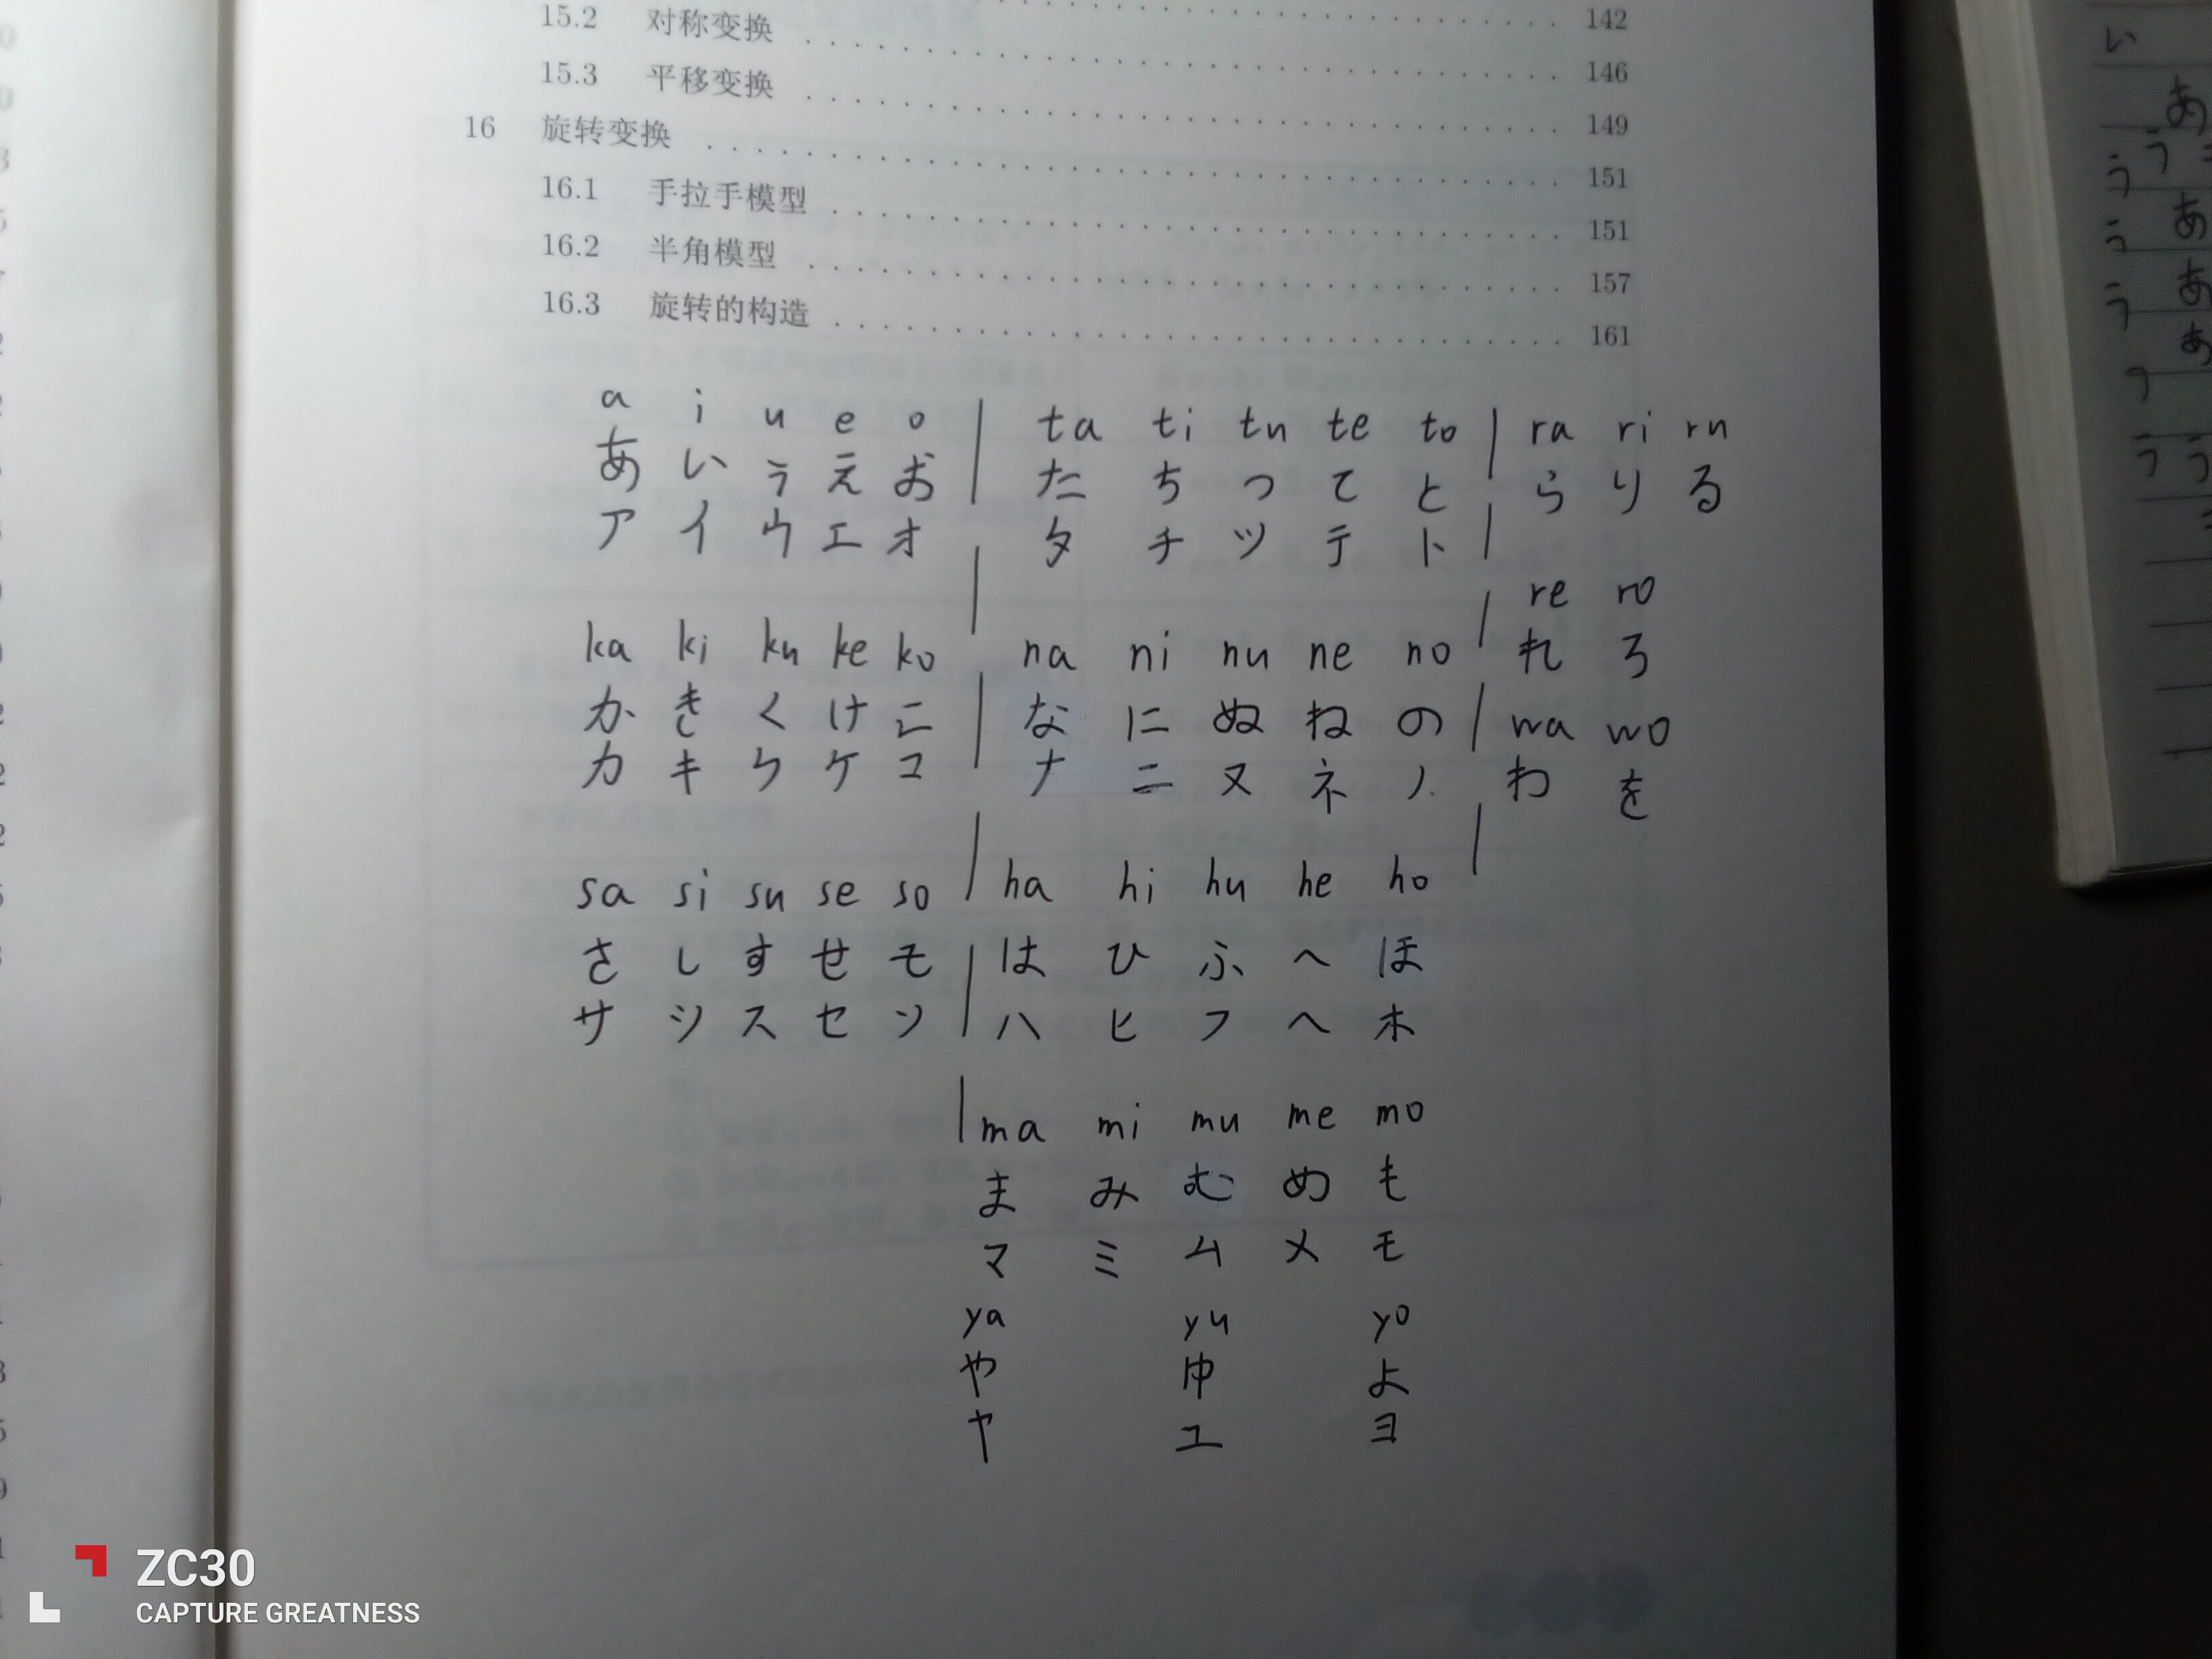 15.2 对称变换 142
15.3 平移变换 146
16 旋转变换 149
16.1 手拉手模型 151
16.2 半角模型 151
16.3 旋转的构造 157
161
a i u e o
あ い う え お
ア イ ウ エ オ
ka ki ku ke ko
か き く け こ
カ キ ク ケ コ
sa si su se so
さ し す せ そ
サ シ ス セ ソ
ta ti tu te to
た ち つ て と
タ チ ツ テ ト
na ni nu ne no
な に ぬ ね の
ナ ニ ヌ ネ ノ
ha hi hu he ho
は ひ ふ へ ほ
ハ ヒ フ ヘ ホ
ma mi mu me mo
ま み む め も
マ ミ ム メ モ
ya yu yo
や ゆ よ
ヤ ユ ヨ
ra ri ru
ら り る
re ro
れ ろ
wa wo
わ を
い
あ
う う
う あ
う あ
あ
う う
ZC30
CAPTURE GREATNESS